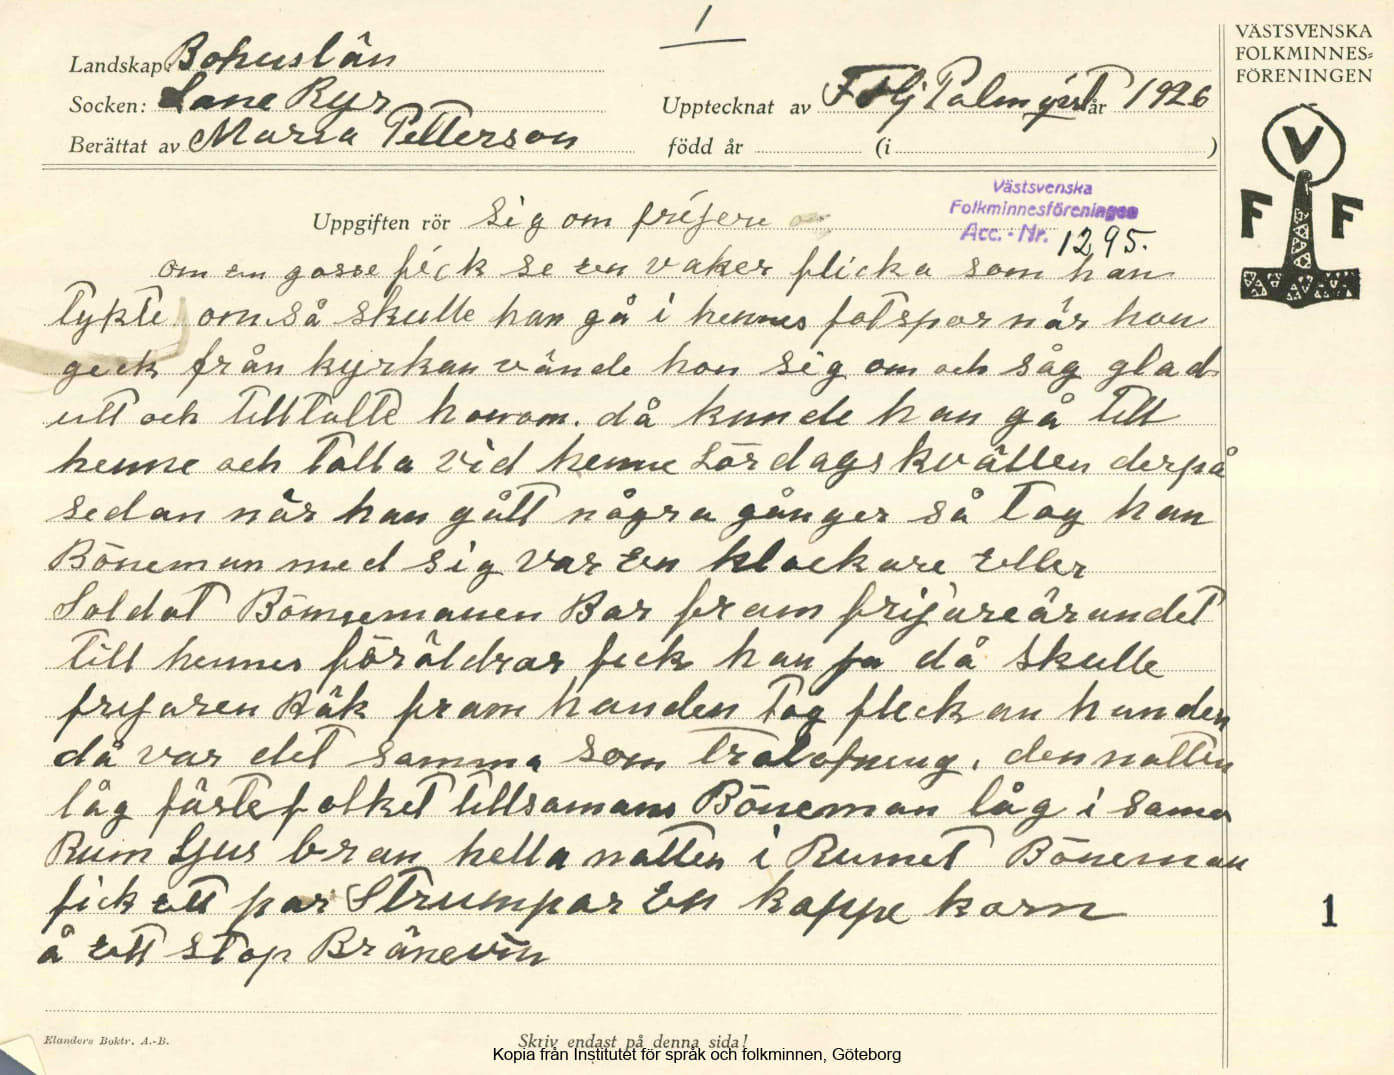 1
Landskap: Bohuslän
Socken: Lane Ryr
Berättat av Maria Petterson
Upptecknat av F Hj Palmqvist år 1926
född år (i )
VÄSTSVENSKA
FOLKMINNES=
FÖRENINGEN
V
F F
Uppgiften rör Sig om frijeri
Västsvenska
Folkminnesföreningen
Acc. - Nr. 1295.
om en gosse fick se en vaker flicka som han
tykte om så skulle han gå i hennes fotspor när hon
geck från kyrkan vände hon sig om och såg glad
utt och tilltalte honom. då kunde han gå till
henne och talla vid henne Lördagskvällen derpå
sedan när han gått några gånger så tog han
Böneman med sig var en klockare eller
Soldat Bönnemanen Bar fram frijareärandet
till hennes föräldrar feck han ja då skulle
frijaren Räk fram handen tog fleckan handen
då var det samma som trolofning. den natten
låg fästefolket tillsamans Böneman låg i sama
Rum Ljus bran hella natten i Rumet Böneman
fick ett par Strumpar en kappe korn
å ett stop Bränevin
1
Elanders Boktr. A.-B.
Skriv endast på denna sida!
Kopia från Institutet för språk och folkminnen, Göteborg